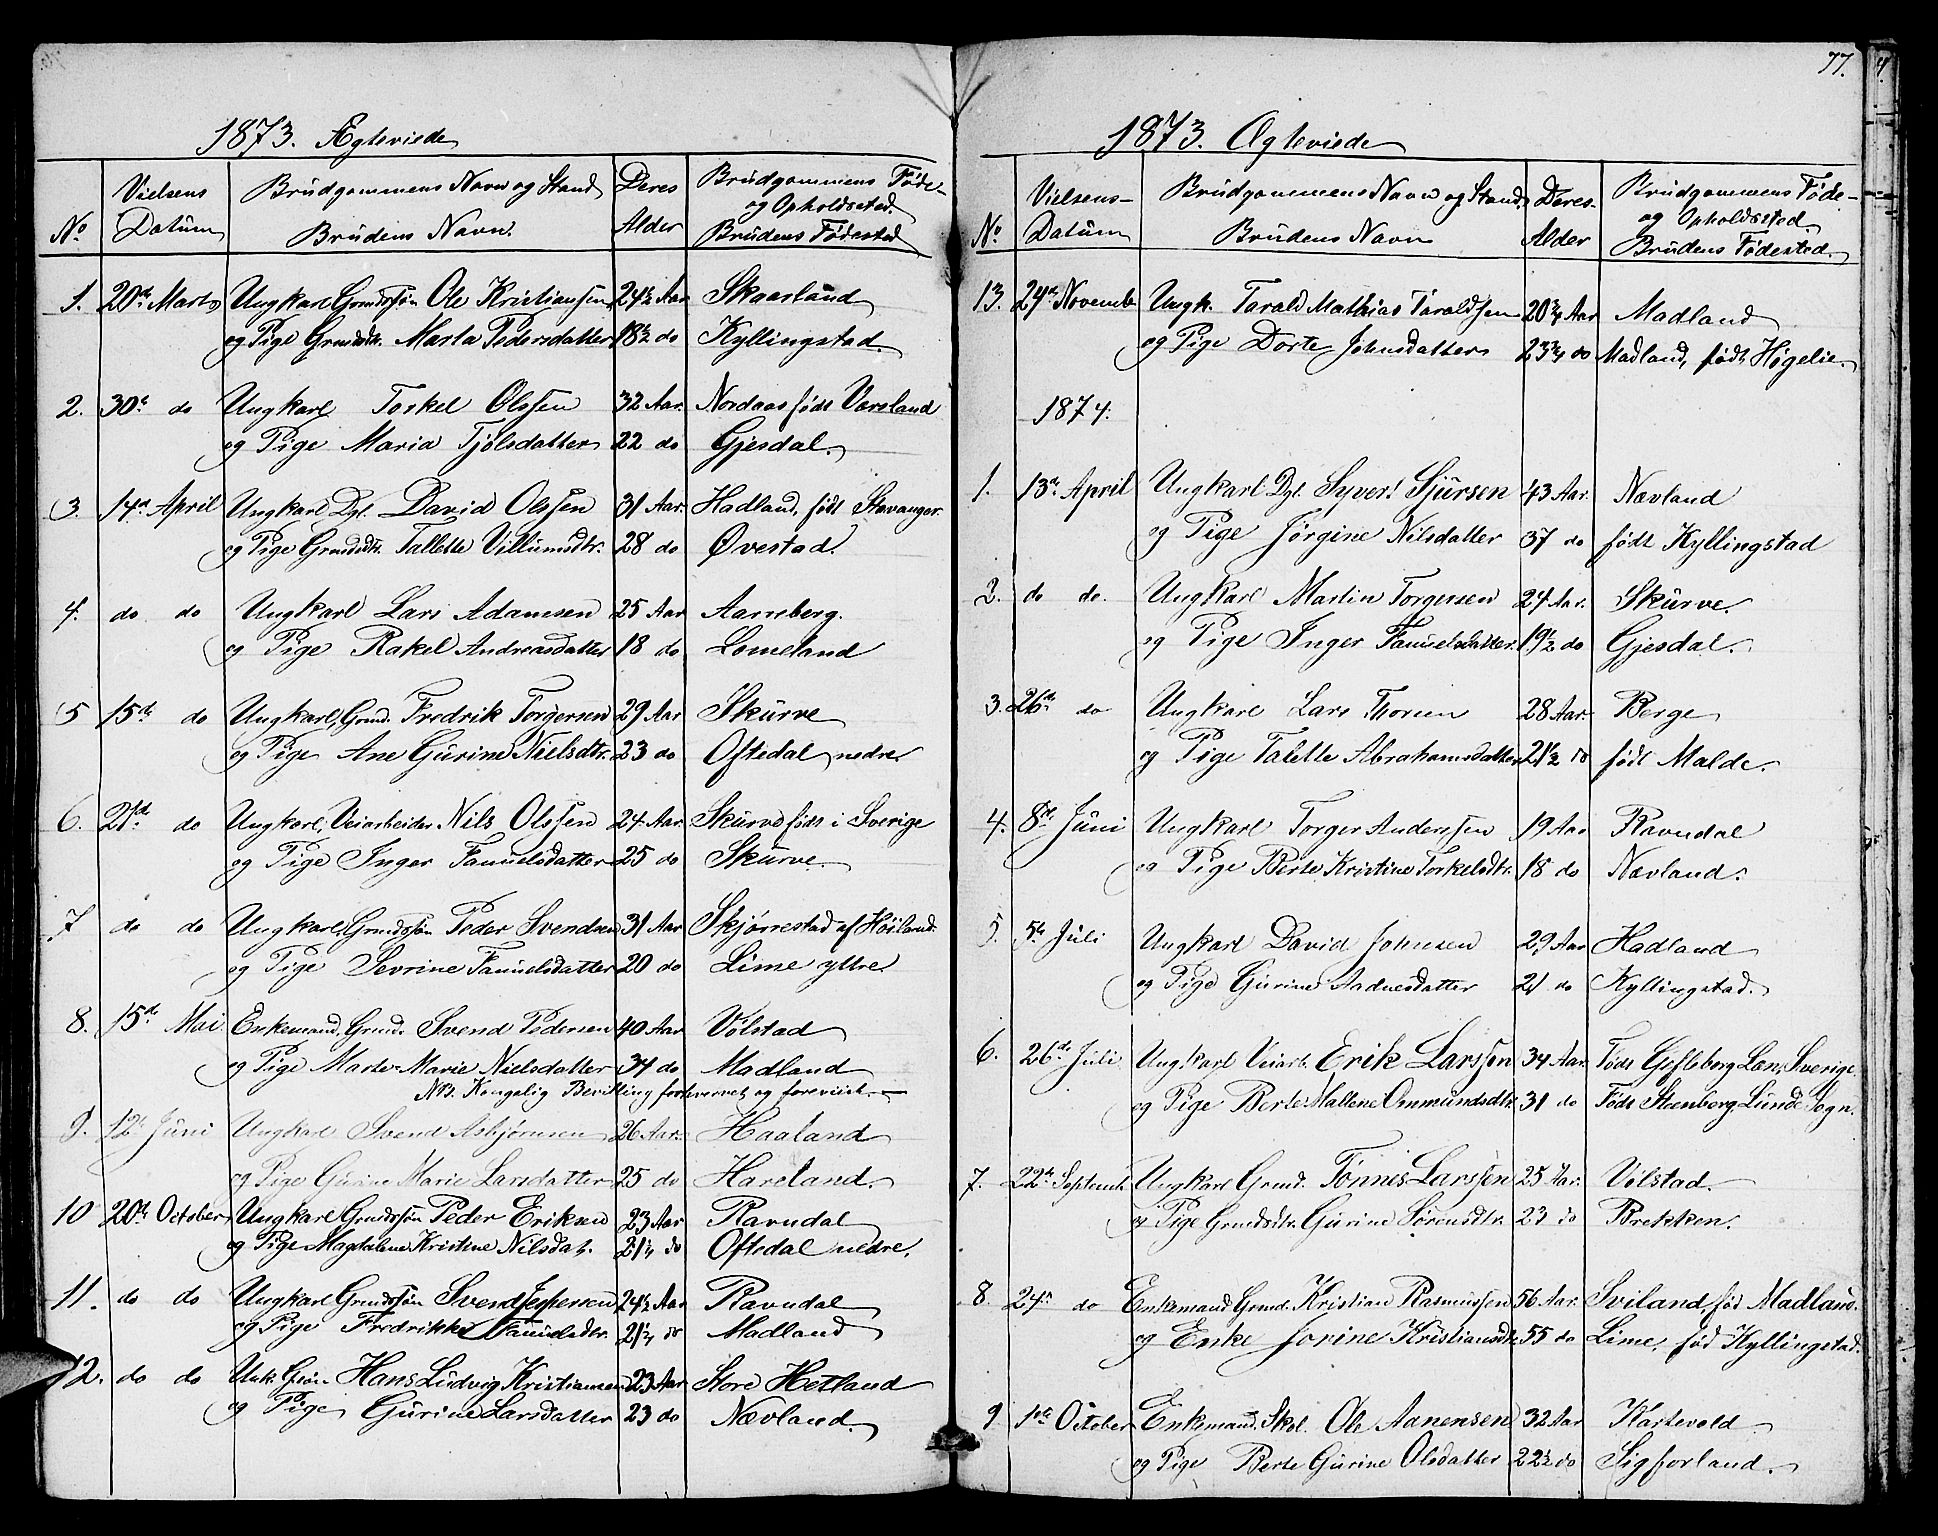 1873. Ægteviede
No.
Vielsens Datum
Brudgommens Navn og Stand
Brudens Navn.
Deres Alder
Brudgommens Føde- og Opholdssted.
Brudens Fødested
1. 20de Marts Ungkarl Grmdssøn Ole Kristiansen 24½ Aar Skaarland
og Pige Grmdsdtr. Marta Pedersdatter 18½ do Kyllingstad.
2. 30te do Ungkarl Torkel Olssen 32 Aar. Nordaas født Varsland
og Pige Maria Tjølsdatter 22 do Gjesdal.
3. 14de April Ungkarl Dgl. David Olssen 31 Aar. Hadland, født Stavanger
og Pige Grmdsdtr. Tallette Villumsdtr. 28 do Øvestad.
4. do do Ungkarl Lars Adamsen 25 Aar Aarreberg.
og Pige Rakel Andreasdatter 18 do Lomeland
5 15de do Ungkarl, Grmd. Fredrik Torgersen 29 Aar Skurve
og Pige Ane Gurine Nielsdtr. 23 do Oftedal nedre.
6. 21de do Ungkarl, Veiarbeider Nils Olssen 24 Aar. Skurve født i Sverige
og Pige Inger Fanuelsdatter 25 do Skurve.
7 do do Ungkarl, Grmdssøn Peder Svendsen 31 Aar Skjørrestad af Høiland.
og Pige Sevrine Fanuelsdatter 20 do Lime yttre.
8. 15de Mai Enkemand, Grmd. Svend Pedersen 40 Aar Vølstad
og Pige Marte Marie Nielsdatter 34 do Madland
NB. Kongelig Bevilling forhvervet og foreviist.
9. 12te Juni Ungkarl Svend Asbjørnsen 26 Aar. Haaland
og Pige Gurine Marie Larsdatter 25 do Hareland.
10 20de October Ungkarl Grmdssøn Peder Eriksen 23 Aar Ravndal
og Pige Magdalene Kristine Nilsdat. 21¼ do Oftedal nedre.
11. do do Ungkarl Grmdssøn Svend Jespersen 24½ Aar Ravndal
og Pige Fredrikke Fanuelsdtr. 21¼ do Madland
12. do do Unk. Gsøn Hans Ludvig Kristiansen 23 Aar Store Hetland
og Pige Gurine Larsdatter 23 do Nævland.
77.
1873. Ægteviede
No.
Vielsens Datum
Brudgommens Navn og Stand.
Brudens Navn
Deres Alder
Brudgommens Føde- og Opholdssted
Brudens Fødested.
13. 24de Novemb Ungk. Tarald Mathias Taraldsen 20¾ Aar Madland
og Pige Dorte Johnsdatter 23¾ do Madland, født Høgelie.
1874.
1. 13de April Ungkarl Dgl. Syvert Sjursen 43 Aar. Nævland
og Pige Jørgine Nilsdatter 37 do født Kyllingstad
2. do do. Ungkarl Martin Torgersen 24 Aar. Skurve.
og Pige Inger Fanuelsdatter. 19½ do Gjesdal.
3. 26de do Ungkarl Lars Thorsen 28 Aar. Berge
og Pige Talette Abrahamsdatter 21½ do født Malde.
4. 8de Juni Ungkarl Torger Anderssen 19 Aar Ravndal
og Pige Berte Kristine Torkelsdtr. 18 do Nævland.
5. 5te Juli Ungkarl David Johnsen 29 Aar Hadland
og Pige Gurine Aadnesdatter 21 do Kyllingstad.
6. 26de Juli Ungkarl Veiarb. Erik Larssen 34 Aar. Født Gefleborg Læn, Sverige
og Pige Berte Mallene Ommundsdtr. 31 do Født Steenborg, Lunde Sogn.
7. 22de Septemb. Ungkarl Grmd. Tønnes Larssen 25 Aar. Vølstad.
og Pige Grmdsdtr. Gurine Sørensdtr. 23 do Brekken.
8. 24de do Enkemand Grmd. Kristian Rasmussen 56 Aar. Sviland, fød Madland.
og Enke Jorine Kristiansdtr. 55 do Lime, fød Kyllingstad.
9. 1ste October Enkemand. Skol. Ole Aanensen 32 Aar Kartevold
og Pige Berte Gurine Olsdatter 22½ do Sigforland.